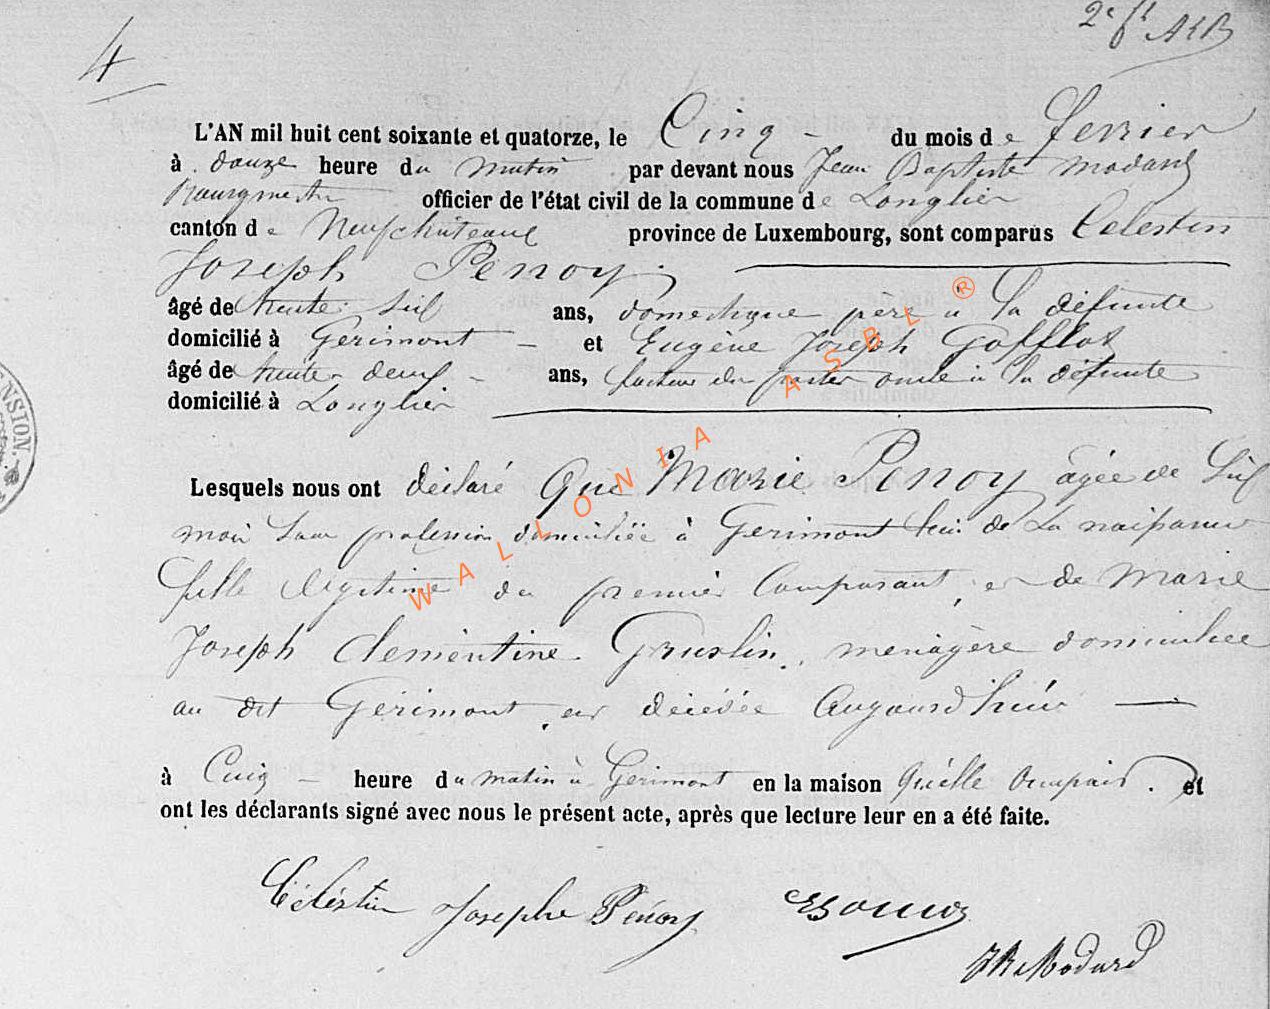 4
L'AN mil huit cent soixante et quatorze, le Cinq du mois de fevrier
à douze heure du matin par devant nous Jean Baptiste Modard
Bourgmestre officier de l'état civil de la commune de Longlier
canton de Neufchâteau province de Luxembourg, sont comparus Celestin
Joseph Penoy.
âgé de trente six ans, domestique père à la défunte
domicilié à Gerimont et Eugène Joseph Gofflot
âgé de trente deux ans, facteur des postes oncle à la défunte
domicilié à Longlier
Lesquels nous ont déclaré Que Marie Penoy âgée de six
mois sans profession domiciliée à Gerimont lieu de sa naissance
fille légitime du premier Comparant, et de Marie
Joseph Clementine Gruslin, menagère domiciliée
au dit Gerimont, est décédée Aujourd'hui
à Cinq heure du matin à Gerimont en la maison Qu'elle occupait. et
ont les déclarants signé avec nous le présent acte, après que lecture leur en a été faite.
Céléstin Josephe Pénoy
JB Modard
NSION.
WALLONIA ASBL ®